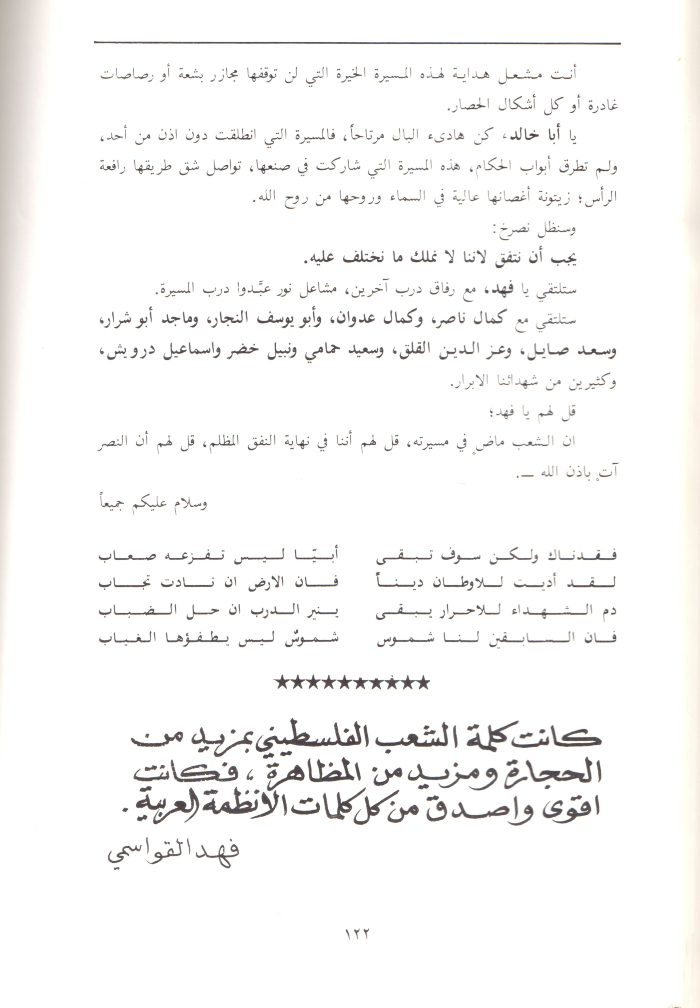 أنت مشعل هداية لهذه المسيرة الخيرة التي لن توقفها مجازر بشعة أو رصاصات
غادرة أو كل أشكال الحصار.
يا أبا خالد، كن هادىء البال مرتاحاً، فالمسيرة التي انطلقت دون اذن من أحد،
ولم تطرق أبواب الحكام، هذه المسيرة التي شاركت في صنعها، تواصل شق طريقها رافعة
الرأس؛ زيتونة أغصانها عالية في السماء وروحها من روح الله.
وسنظل نصرخ:
يجب أن نتفق لاننا لا نملك ما نختلف عليه.
ستلتقي يا فهد، مع رفاق درب آخرين، مشاعل نور عبَّدوا درب المسيرة.
ستلتقي مع كمال ناصر، وكمال عدوان، وأبو يوسف النجار، وماجد أبو شرار،
وسعد صايل، وعز الدين القلق، وسعيد حمامي ونبيل خضر واسماعيل درويش،
وكثيرين من شهدائنا الابرار.
قل لهم يا فهد؛
ان الشعب ماضٍ في مسيرته، قل لهم أننا في نهاية النفق المظلم، قل لهم أن النصر
آتٍ باذن الله ــ.
وسلام عليكم جميعاً
فقدناك ولكن سوف تبقى أبيّا ليس تفزعه صعاب
لقد أديت للاوطان ديناً فان الارض ان نادت تجاب
دم الشهداء للاحرار يبقى ينير الدرب ان حل الضباب
فان السابقين لنا شموس شموسٌ ليس يطفؤها الغياب
★★★★★★★★★★
كانت كلمة الشعب الفلسطيني بمزيد من
الحجارة ومزيد من المظاهرة، فكانت
اقوى واصدق من كل كلمات الانظمة العربية.
فهد القواسمي
١٢٢